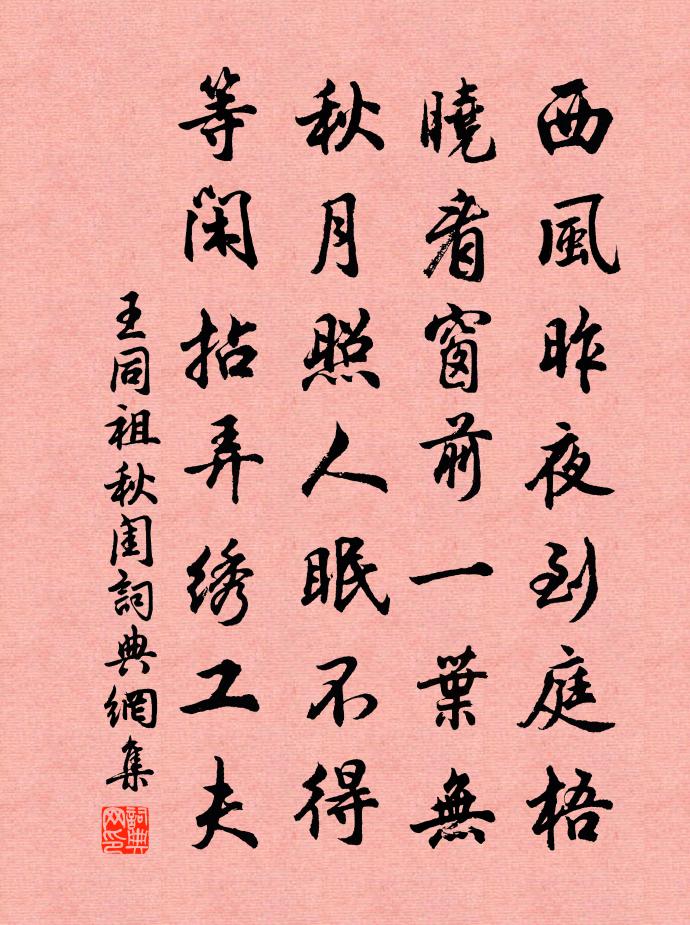 西風昨夜到庭梧
曉看窗前一葉無
秋月照人眠不得
等閑拈弄绣工夫
王同祖秋閨詞典網集
詞典网印